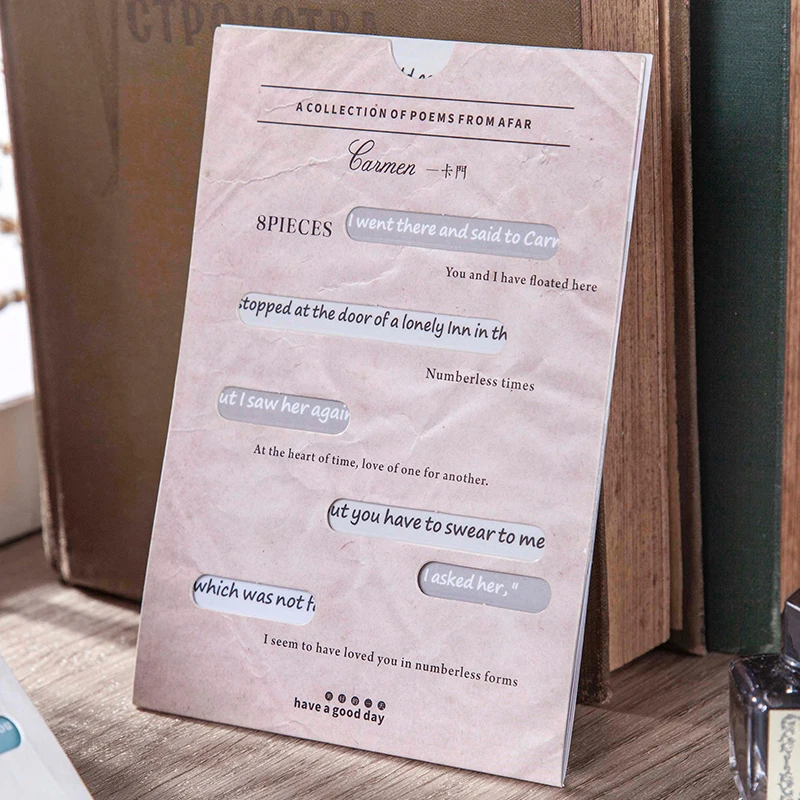 СТРОИСТВА
A COLLECTION OF POEMS FROM AFAR
Carmen —卡門
8PIECES
I went there and said to Carr
You and I have floated here
topped at the door of a lonely Inn in th
Numberless times
ut I saw her again
At the heart of time, love of one for another.
ut you have to swear to me
I asked her,"
which was not h
I seem to have loved you in numberless forms
have a good day